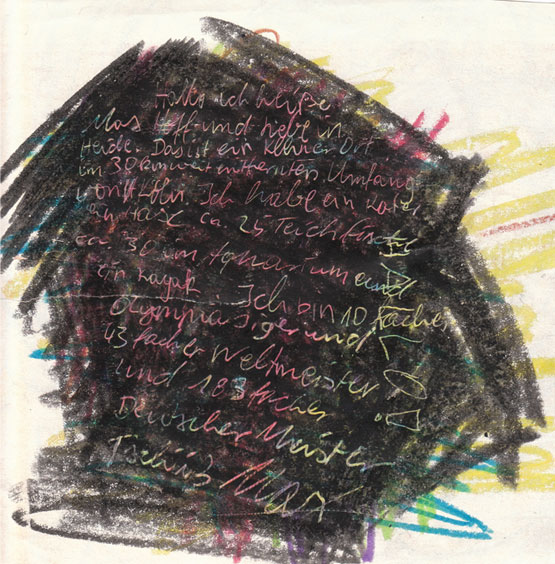 Hallo ich heiße
Max Hoff und lebe in
Heide. Das ist ein kleiner Ort
im 30 km weit entfernten Umfang
von Köln. Ich habe ein Kater
ca. 25 Teichfische
ca. 30 im Aquarium und
ein Kajak. Ich bin 10 facher
Olympia Siger und
43 facher Weltmeister
und 183 facher
Deutscher Meister
Tschüß Max